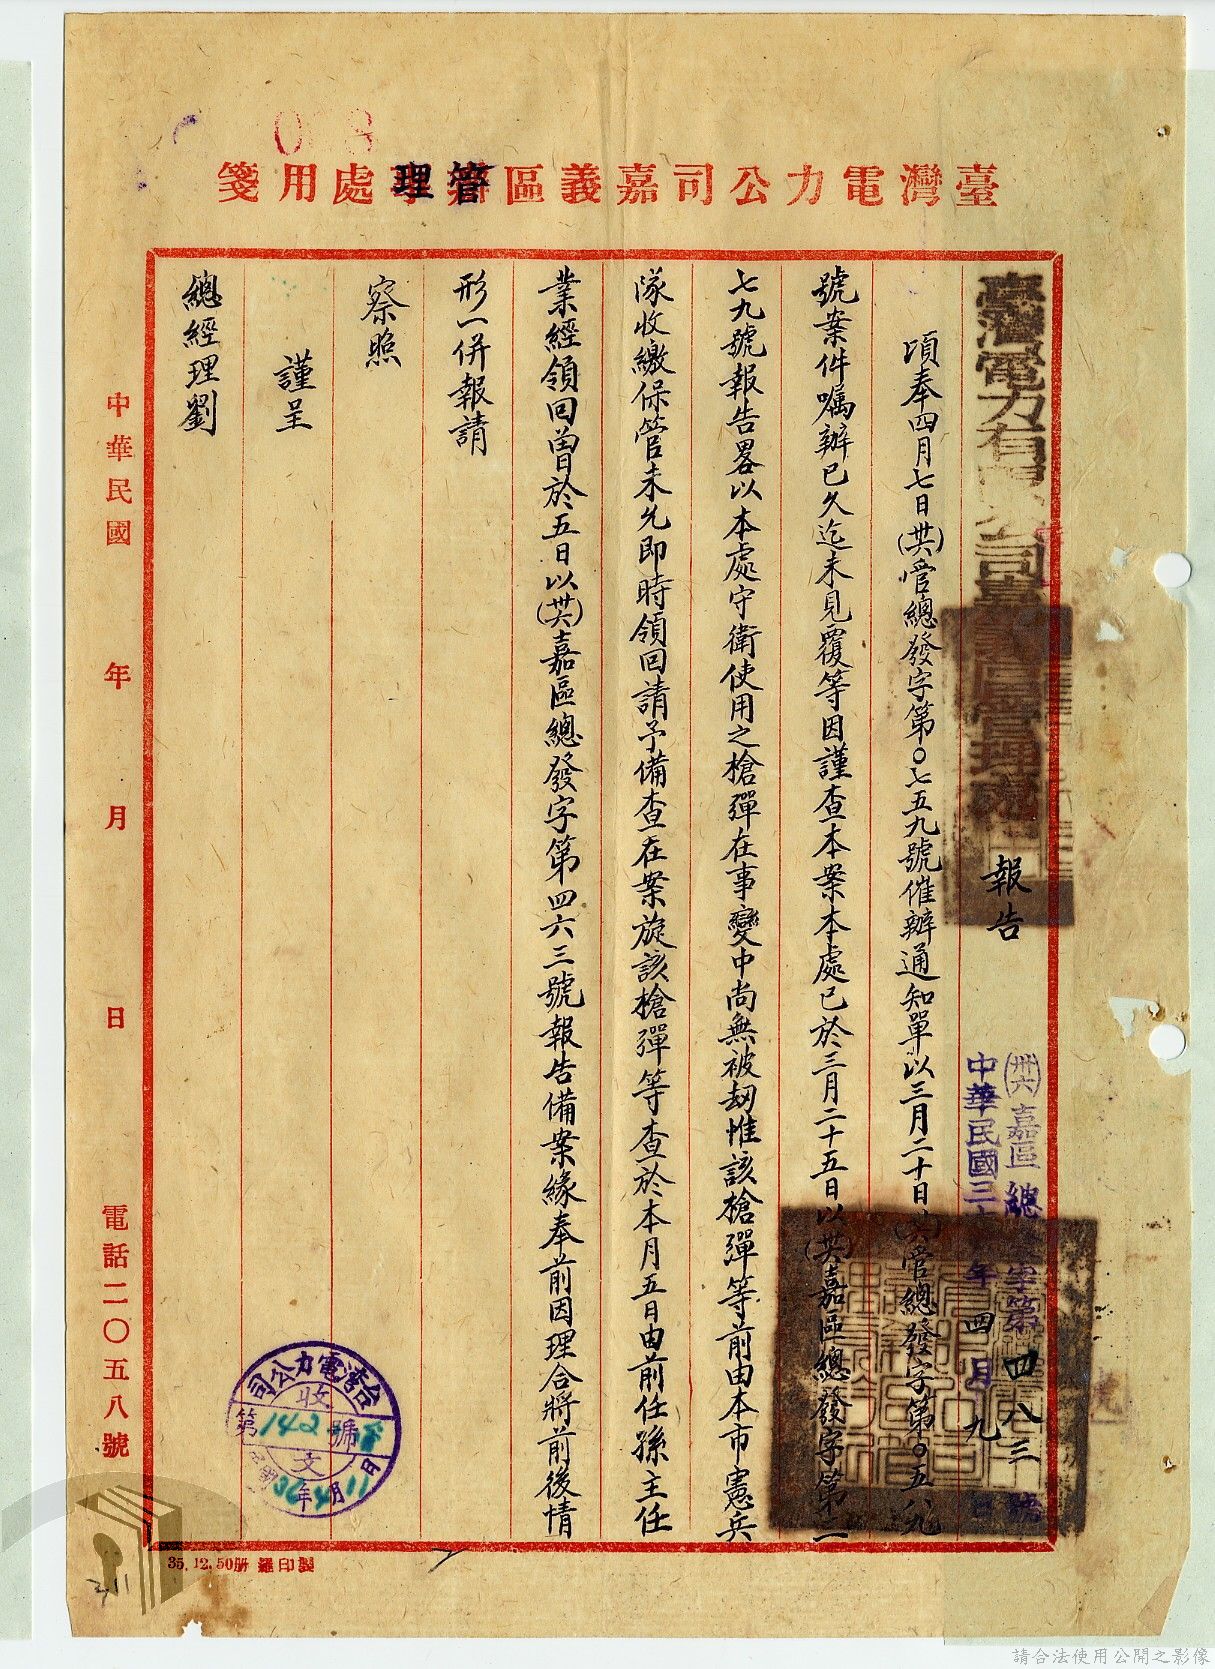 臺灣電力公司嘉義區管理處用箋
臺灣電力有限公司嘉義區管理處 報告
(卅六)嘉區總發字第四八三號
中華民國三十六年四月九日
頃奉四月七日(卅六)管總發字第0七五九號催辦通知單以三月二十日(卅六)管總發字第0五八九
號案件囑辦已久迄未見覆等因謹查本案本處已於三月二十五日以(卅六)嘉區總發字第二
七九號報告畧以本處守衛使用之槍彈在事變中尚無被刼惟該槍彈等前由本市憲兵
隊收繳保管未允即時領回請予備查在案旋該槍彈等查於本月五日由前任孫主任
業經領回曾於五日以(卅六)嘉區總發字第四六三號報告備案緣奉前因理合將前後情
形一併報請
察照
謹呈
總經理劉
中華民國 年 月 日 電話二〇五八號
台灣電力公司
收文
第142號
36年4月11日
35.12.50册 羅印製
311
請合法使用公開之影像